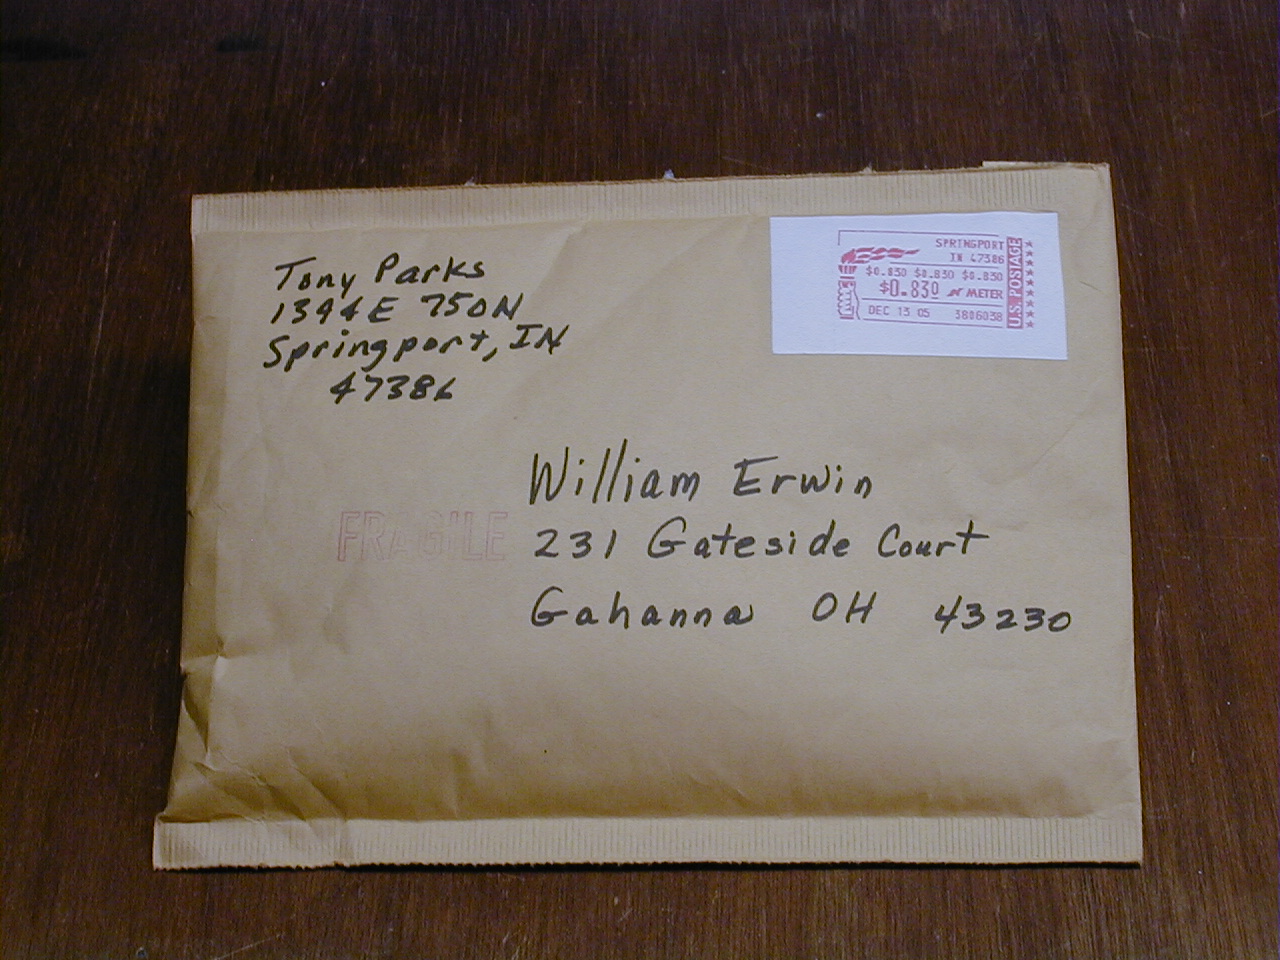 Tony Parks
1394 E 750N
Springport, IN
47386
SPRINGPORT
IN 47386
$0.830 $0.830 $0.830
$0.830 METER
DEC 13 05 3806038
U.S. POSTAGE
FRAGILE
William Erwin
231 Gateside Court
Gahanna OH 43230